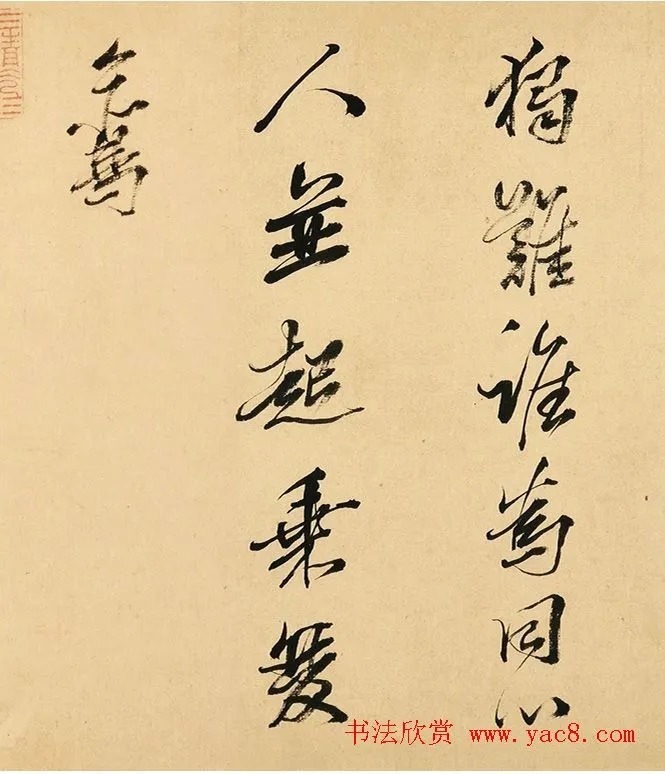 獨難誰為同心
人並起乘雙
书法欣赏 www.yac8.com